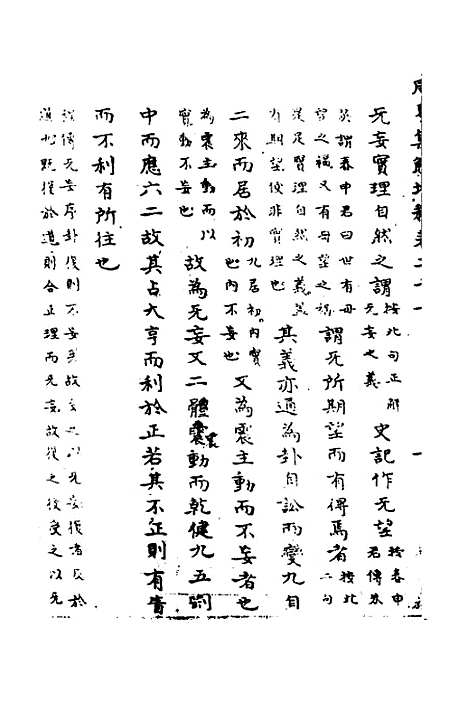 周易集解增釋卷二十一
无妄實理自然之謂按此句正解无妄之義史記作无望按春申君傳朱
英謂春申君曰世有毋望之福又有毋望之禍謂无所期望而有得焉者按此二句
是足實理自然之義蓋有期望便非實理也其義亦通為卦自訟而變九自
二來而居於初九居初內實也內不妄也又為震主動而不妄者也
為震主動而以實動不妄也故為无妄又二體震動而乾健九五剛
中而應六二故其占大亨而利於正若其不正則有眚
而不利有所往也
程傳无妄序卦復則不妄矣故受之以无妄復者反於
道也既復於道則合正理而无妄故復之後受之以无